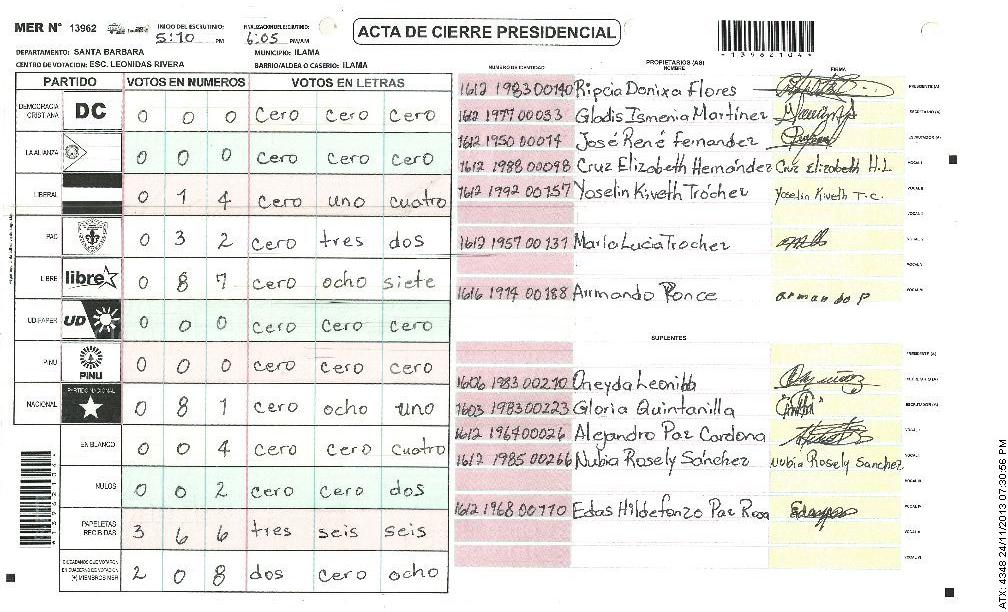 MER N° 13962 INICIO DEL ESCRUTINIO: 5:10 PM FINALIZACION DEL ESCRUTINIO: 6:05 PM/AM
ACTA DE CIERRE PRESIDENCIAL
*13962104*
DEPARTAMENTO: SANTA BARBARA MUNICIPIO: ILAMA
CENTRO DE VOTACION: ESC. LEONIDAS RIVERA BARRIO/ALDEA O CASERIO: ILAMA
PARTIDO VOTOS EN NUMEROS VOTOS EN LETRAS
DEMOCRACIA CRISTIANA DC 0 0 0 cero cero cero
LA ALIANZA 0 0 0 cero cero cero
LIBERAL 0 1 4 cero uno cuatro
PAC 0 3 2 cero tres dos
LIBRE libre 0 8 7 cero ocho siete
UD/FAPER UD 0 0 0 cero cero cero
PINU PINU 0 0 0 cero cero cero
NACIONAL PARTIDO NACIONAL 0 8 1 cero ocho uno
EN BLANCO 0 0 4 cero cero cuatro
NULOS 0 0 2 cero cero dos
PAPELETAS RECIBIDAS 3 6 6 tres seis seis
CIUDADANOS QUE VOTARON EN CUADERNO DE VOTACION (+) MIEMBROS MER 2 0 8 dos cero ocho
PROPIETARIOS (AS)
NUMERO DE IDENTIDAD NOMBRE FIRMA
1612 1983 00140 Ripcia Donixa Flores PRESIDENTE (A)
1612 1977 00033 Glodis Ismenia Martínez SECRETARIO (A)
1612 1950 00074 José René Fernandez ESCRUTADOR (A)
1612 1988 00098 Cruz Elizabeth Hernández Cruz Elizabeth H.L VOCAL I
1612 1992 00157 Yoselin Kiveth Trócher Yoselin Kiveth T.C. VOCAL II
VOCAL III
1612 1957 00131 María Lucia Trochez VOCAL IV
VOCAL V
1616 1974 00188 Armando Ponce armando P VOCAL VI
SUPLENTES
PRESIDENTE (A)
1606 1983 00210 Oneyda Leonibb SECRETARIO (A)
1603 1983 00223 Gloria Quintanilla ESCRUTADOR (A)
1612 1964 00026 Alejandro Paz Cardona VOCAL I
1612 1985 00266 Nubia Rosely Sánchez Nubia Rosely Sanchez VOCAL II
VOCAL III
1612 1968 00110 Edas Hildefonzo Paz Rosa VOCAL IV
VOCAL V
VOCAL VI
ATX: 4348 24/11/2013 07:30:56 PM